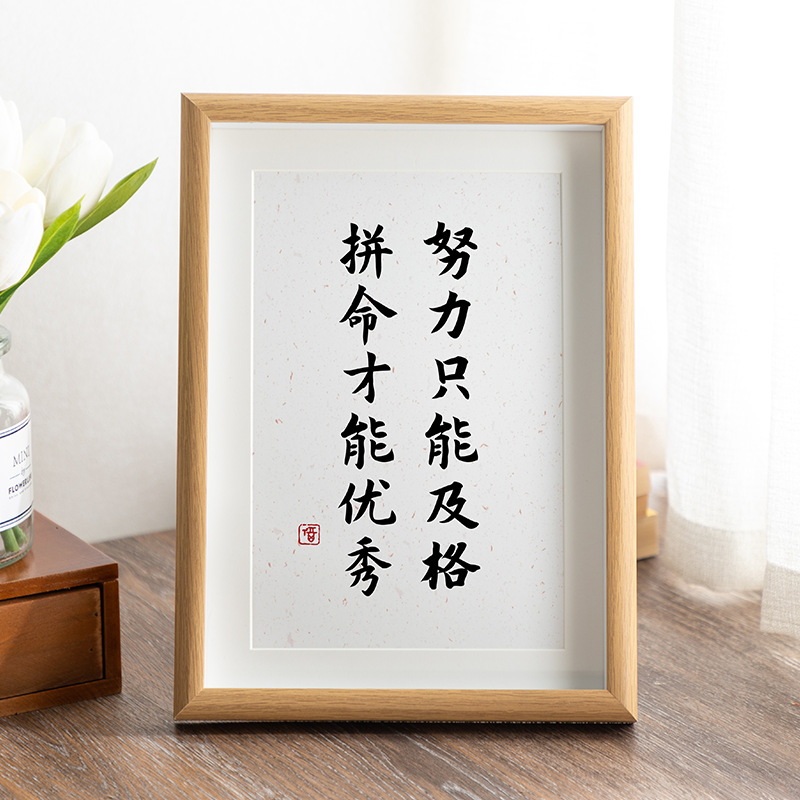 努力只能及格
拼命才能优秀
倍
MIN
FLOWER